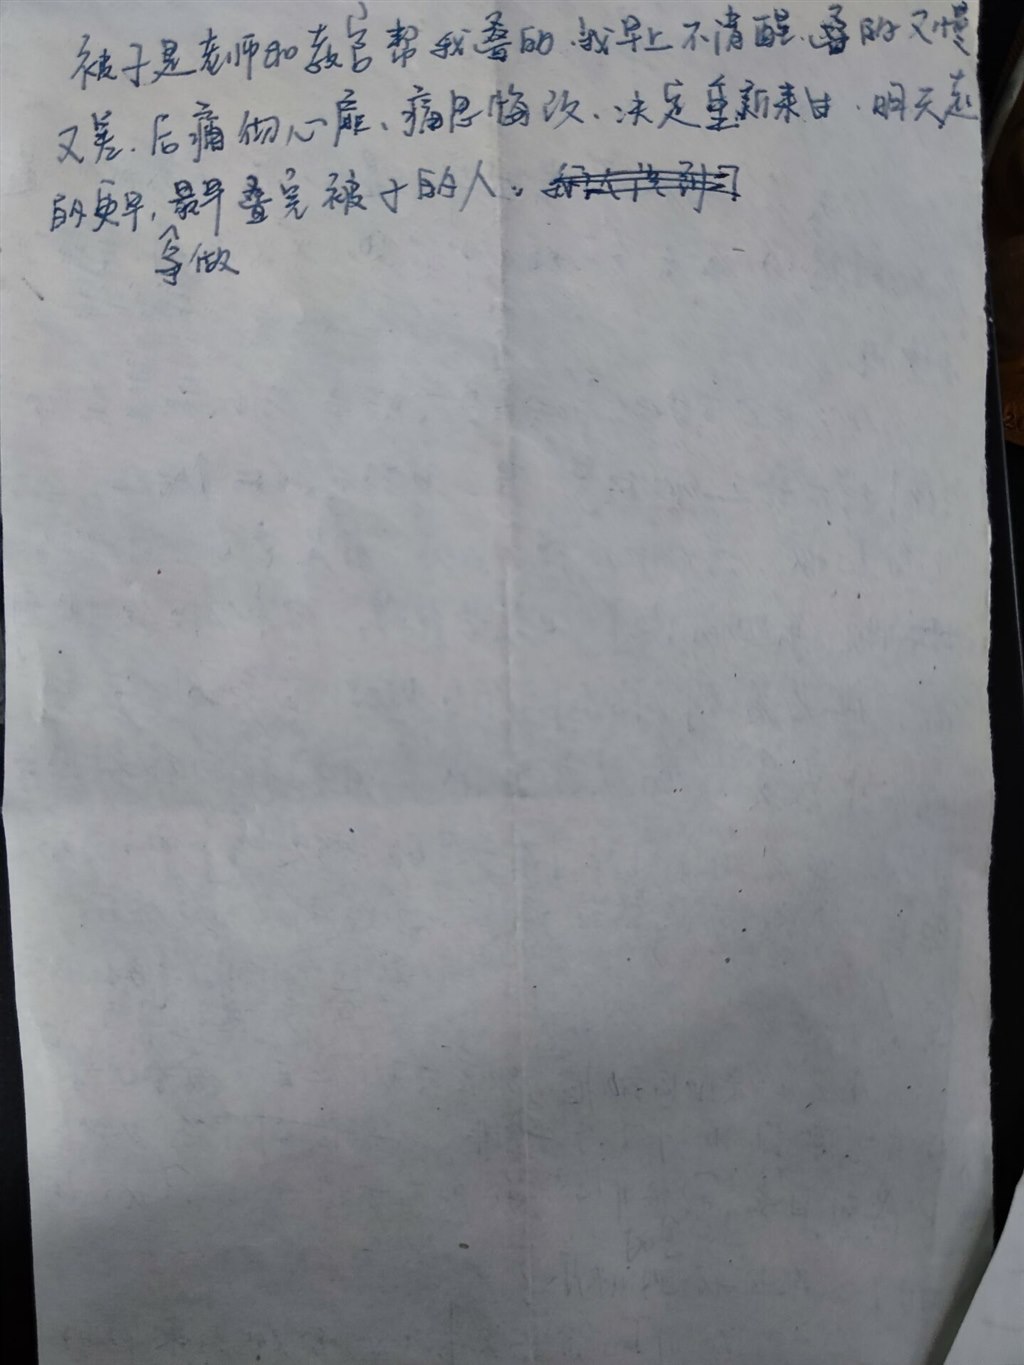 被子是老师和教官帮我叠的.我早上不清醒.叠的又慢
又差.后痛彻心扉、痛思悔改、决定重新来过.明天起
的更早,最早叠完被子的人。
争做